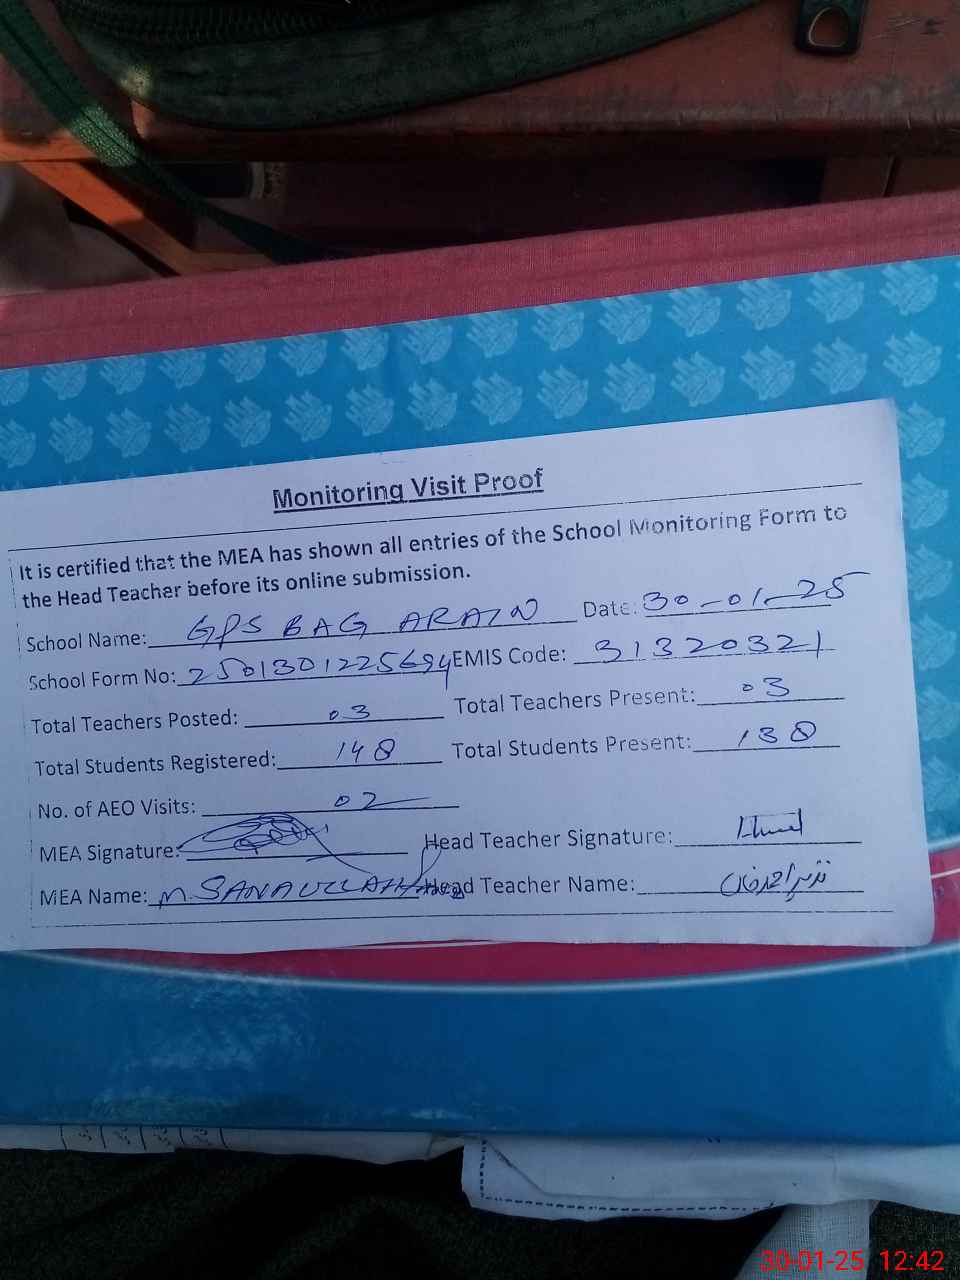 Monitoring Visit Proof
It is certified that the MEA has shown all entries of the School Monitoring Form to
the Head Teacher before its online submission.
School Name: GPS BAG ARAIN Date: 30-01-25
School Form No: 2501301225694 EMIS Code: 31320321
Total Teachers Posted: 03 Total Teachers Present: 03
Total Students Registered: 148 Total Students Present: 138
No. of AEO Visits: 02
MEA Signature: Head Teacher Signature:
MEA Name: M. SANAULLAH Head Teacher Name:
30-01-25 12:42